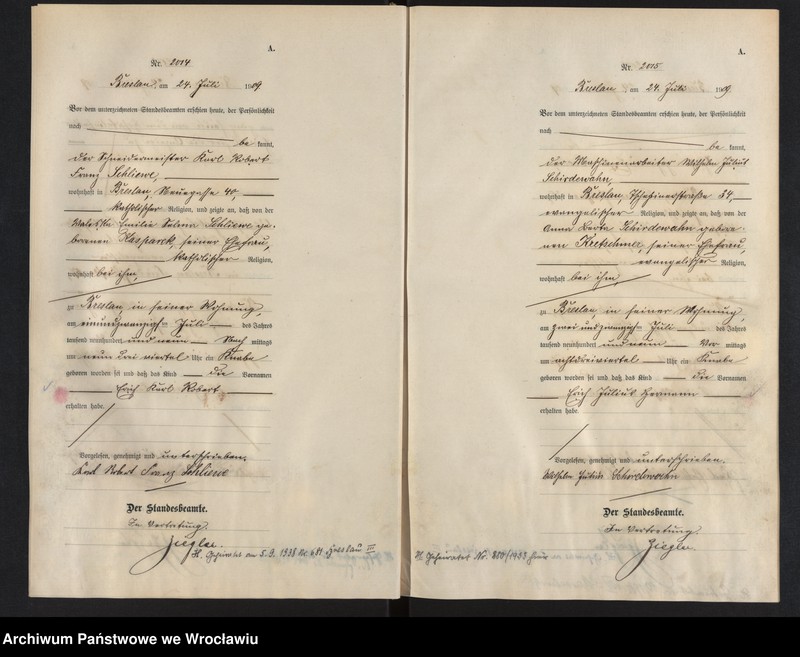 A.
Nr. 2014
Breslau, am 24. Juli 1909.
Vor dem unterzeichneten Standesbeamten erschien heute, der Persönlichkeit
nach
be kannt,
der Schneidermeister Karl Robert
Franz Schliewe,
wohnhaft in Breslau, Neuegasse 40,
katholischer Religion, und zeigte an, daß von der
Emilie Selma Schliewe ge-
borenen Kasparek, seiner Ehefrau,
katholischer Religion,
wohnhaft bei ihm,
zu Breslau, in seiner Wohnung,
am einundzwanzigsten Juli des Jahres
tausend neunhundert und neun Nach mittags
um neun drei viertel Uhr ein Knabe
geboren worden sei und daß das Kind die Vornamen
Erich Karl Robert
erhalten habe.
Vorgelesen, genehmigt und unterschrieben.
Karl Robert Franz Schliewe
Der Standesbeamte.
In Vertretung.
Ziegler.
A.
Nr. 2015
Breslau, am 24. Juli 1909.
Vor dem unterzeichneten Standesbeamten erschien heute, der Persönlichkeit
nach
be kannt,
der Maschinenarbeiter Wilhelm Julius
Schirdewahn,
wohnhaft in Breslau, 54,
evangelischer Religion, und zeigte an, daß von der
Anna Berta Schirdewahn gebore-
nen Kretschmer, seiner Ehefrau,
evangelischer Religion,
wohnhaft bei ihm,
zu Breslau, in seiner Wohnung,
am zwei und zwanzigsten Juli des Jahres
tausend neunhundert und neun Vor mittags
um achtdreiviertel Uhr ein Knabe
geboren worden sei und daß das Kind die Vornamen
Erich Julius Hermann
erhalten habe.
Vorgelesen, genehmigt und unterschrieben.
Wilhelm Julius Schirdewahn
Der Standesbeamte.
In Vertretung.
Ziegler.
Archiwum Państwowe we Wrocławiu